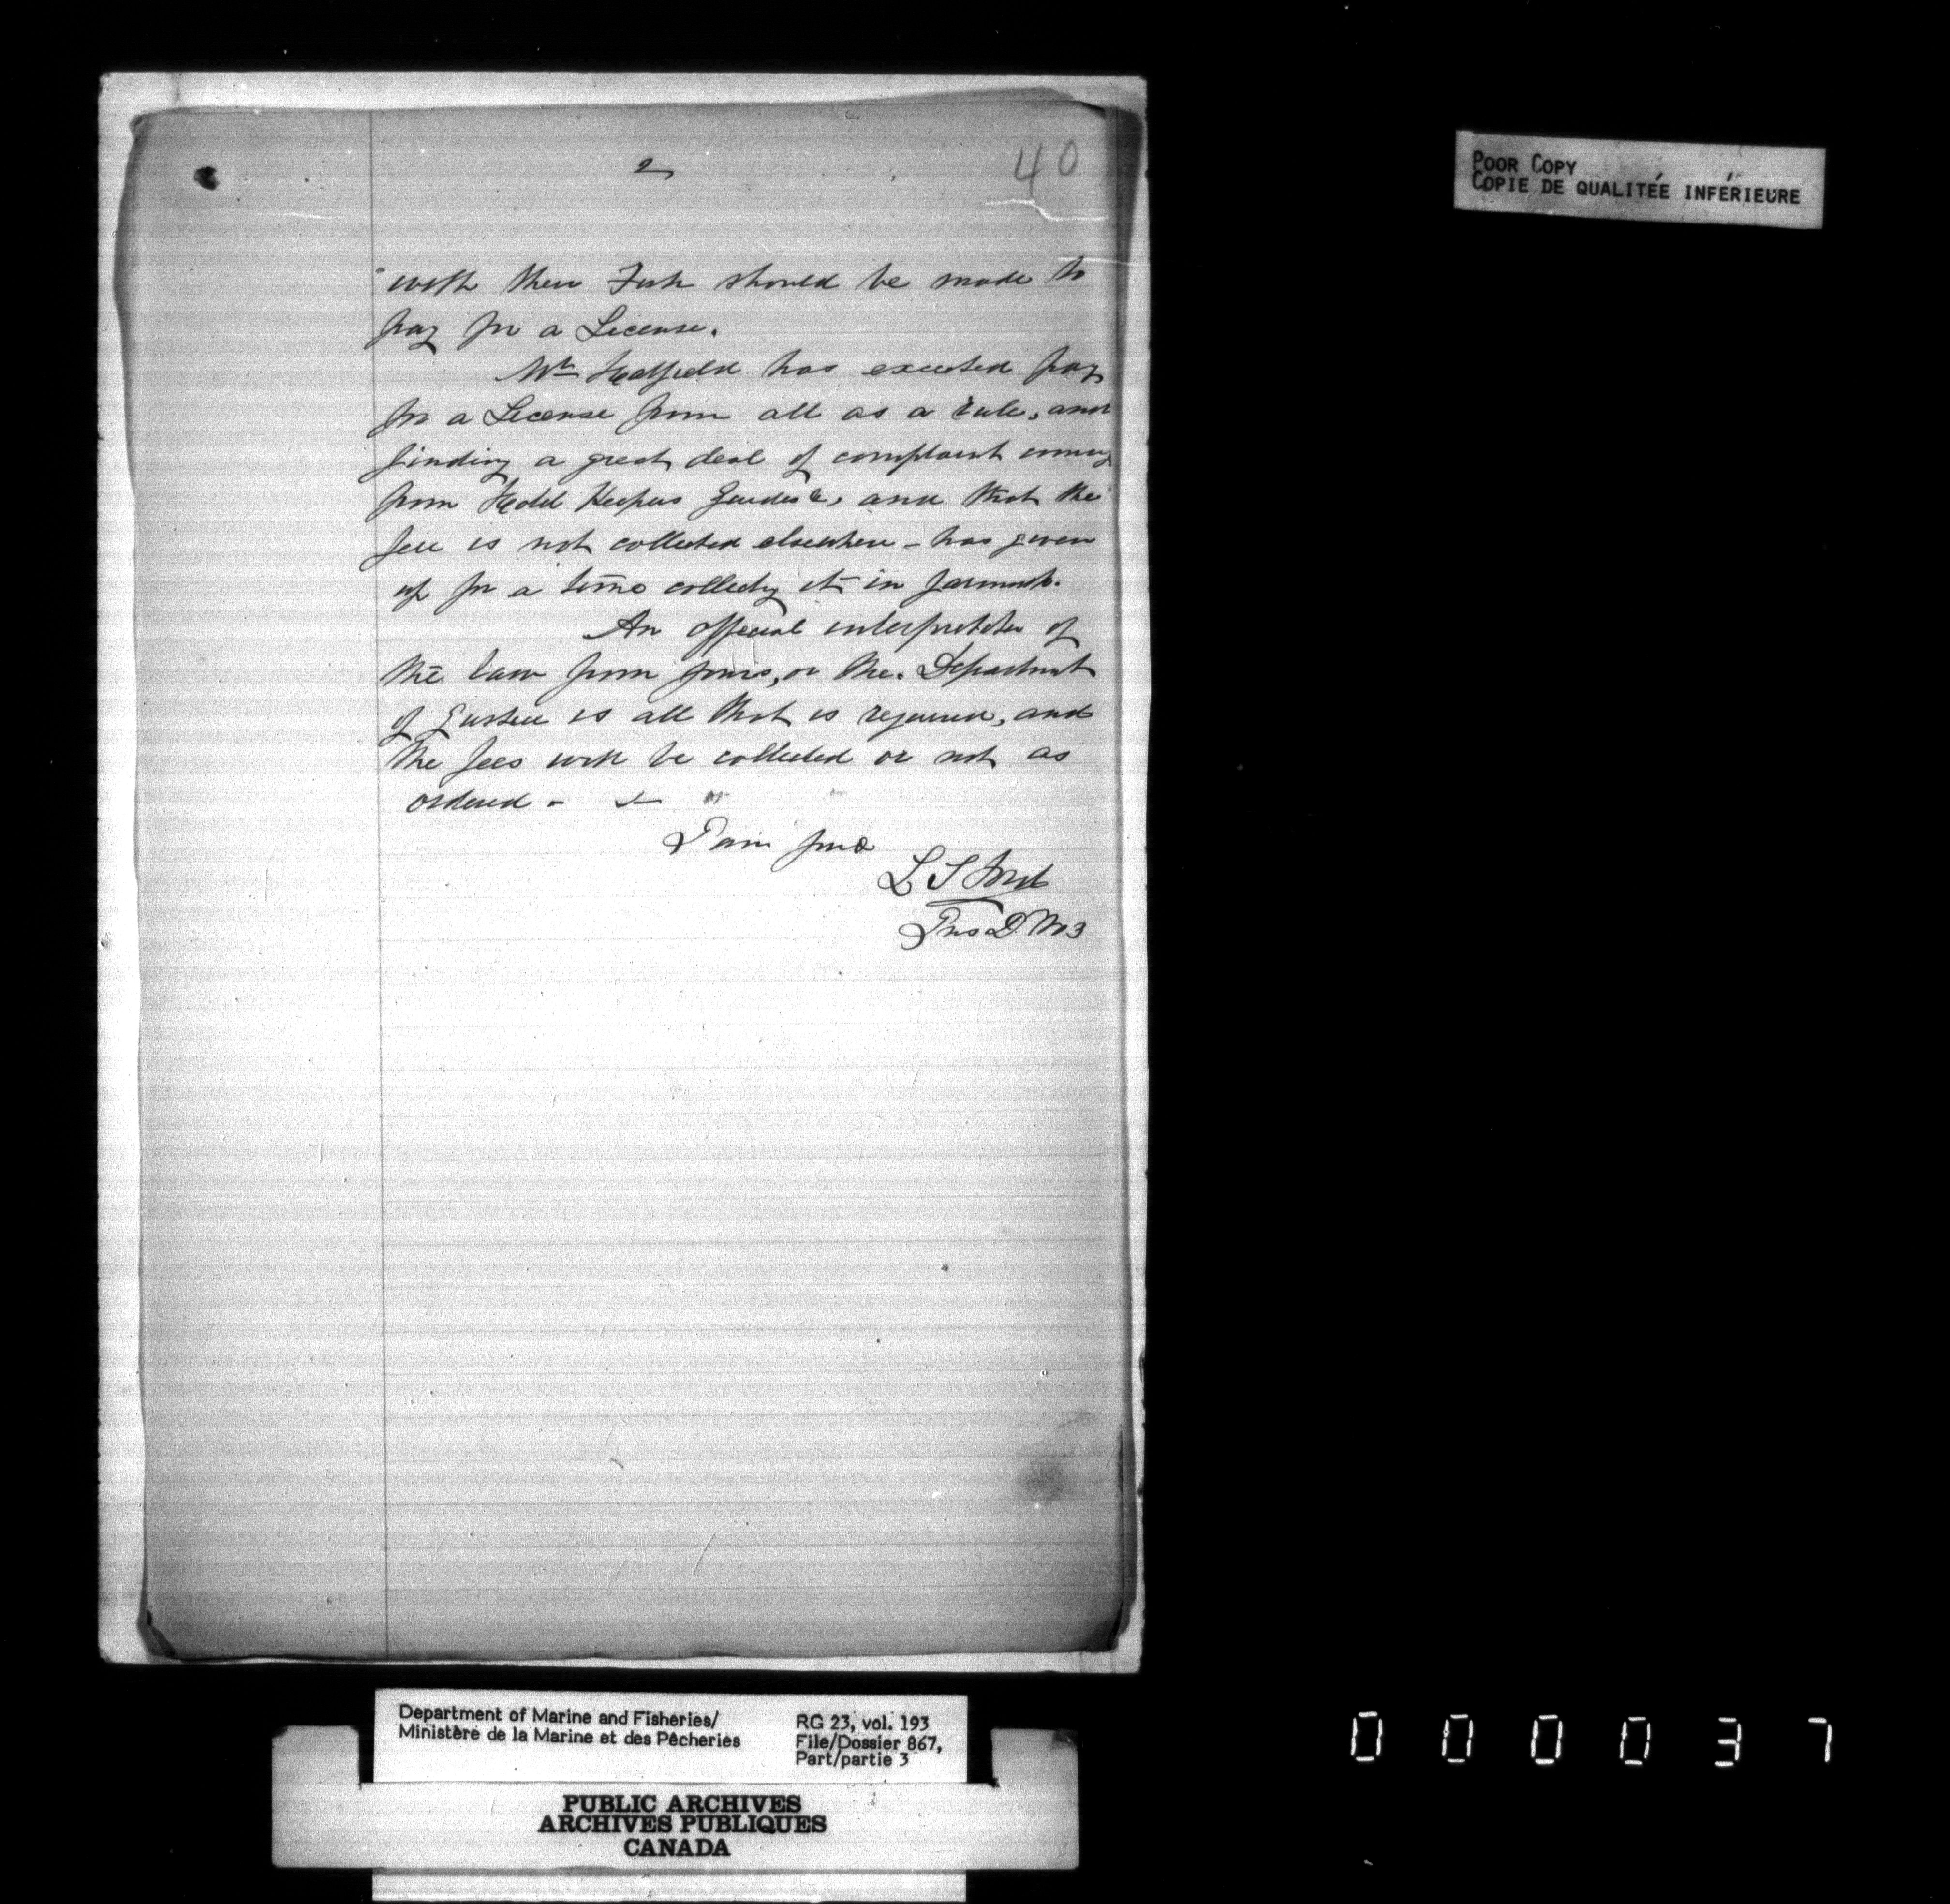 2
40
POOR COPY
COPIE DE QUALITÉE INFÉRIEURE
with their Fish should be made to
pay for a License.
Mr Hatfield has exacted pay
for a License from all as a rule, and
finding a great deal of complaint coming
from Hotel Keepers Guides &c, and that the
fee is not collected elsewhere - has given
up for a time collecting it in Yarmouth.
An official interpretation of
the law from yours, or the Department
of Justice is all that is required, and
the fees will be collected or not as
ordered -
I am yours
L S Ford
Ins D. No 3
Department of Marine and Fisheries/
Ministère de la Marine et des Pêcheries
RG 23, vol. 193
File/Dossier 867,
Part/partie 3
PUBLIC ARCHIVES
ARCHIVES PUBLIQUES
CANADA
000037